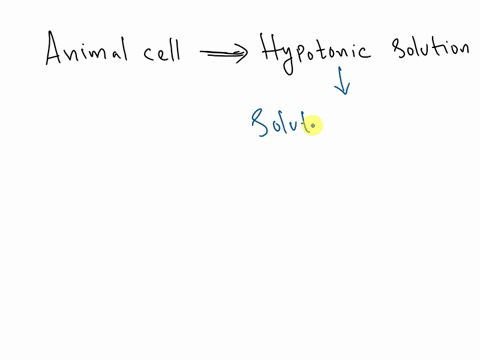 Animal cell ⟹ Hypotonic Solution
↓
Solut